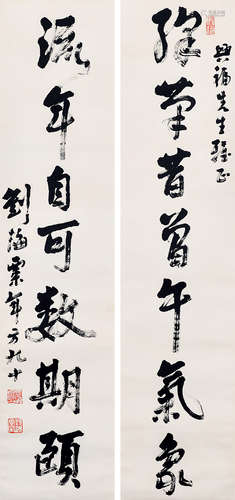 興福先生雅正
綵筆昔曾干氣象
流年自可數期頤
劉海粟年方九十